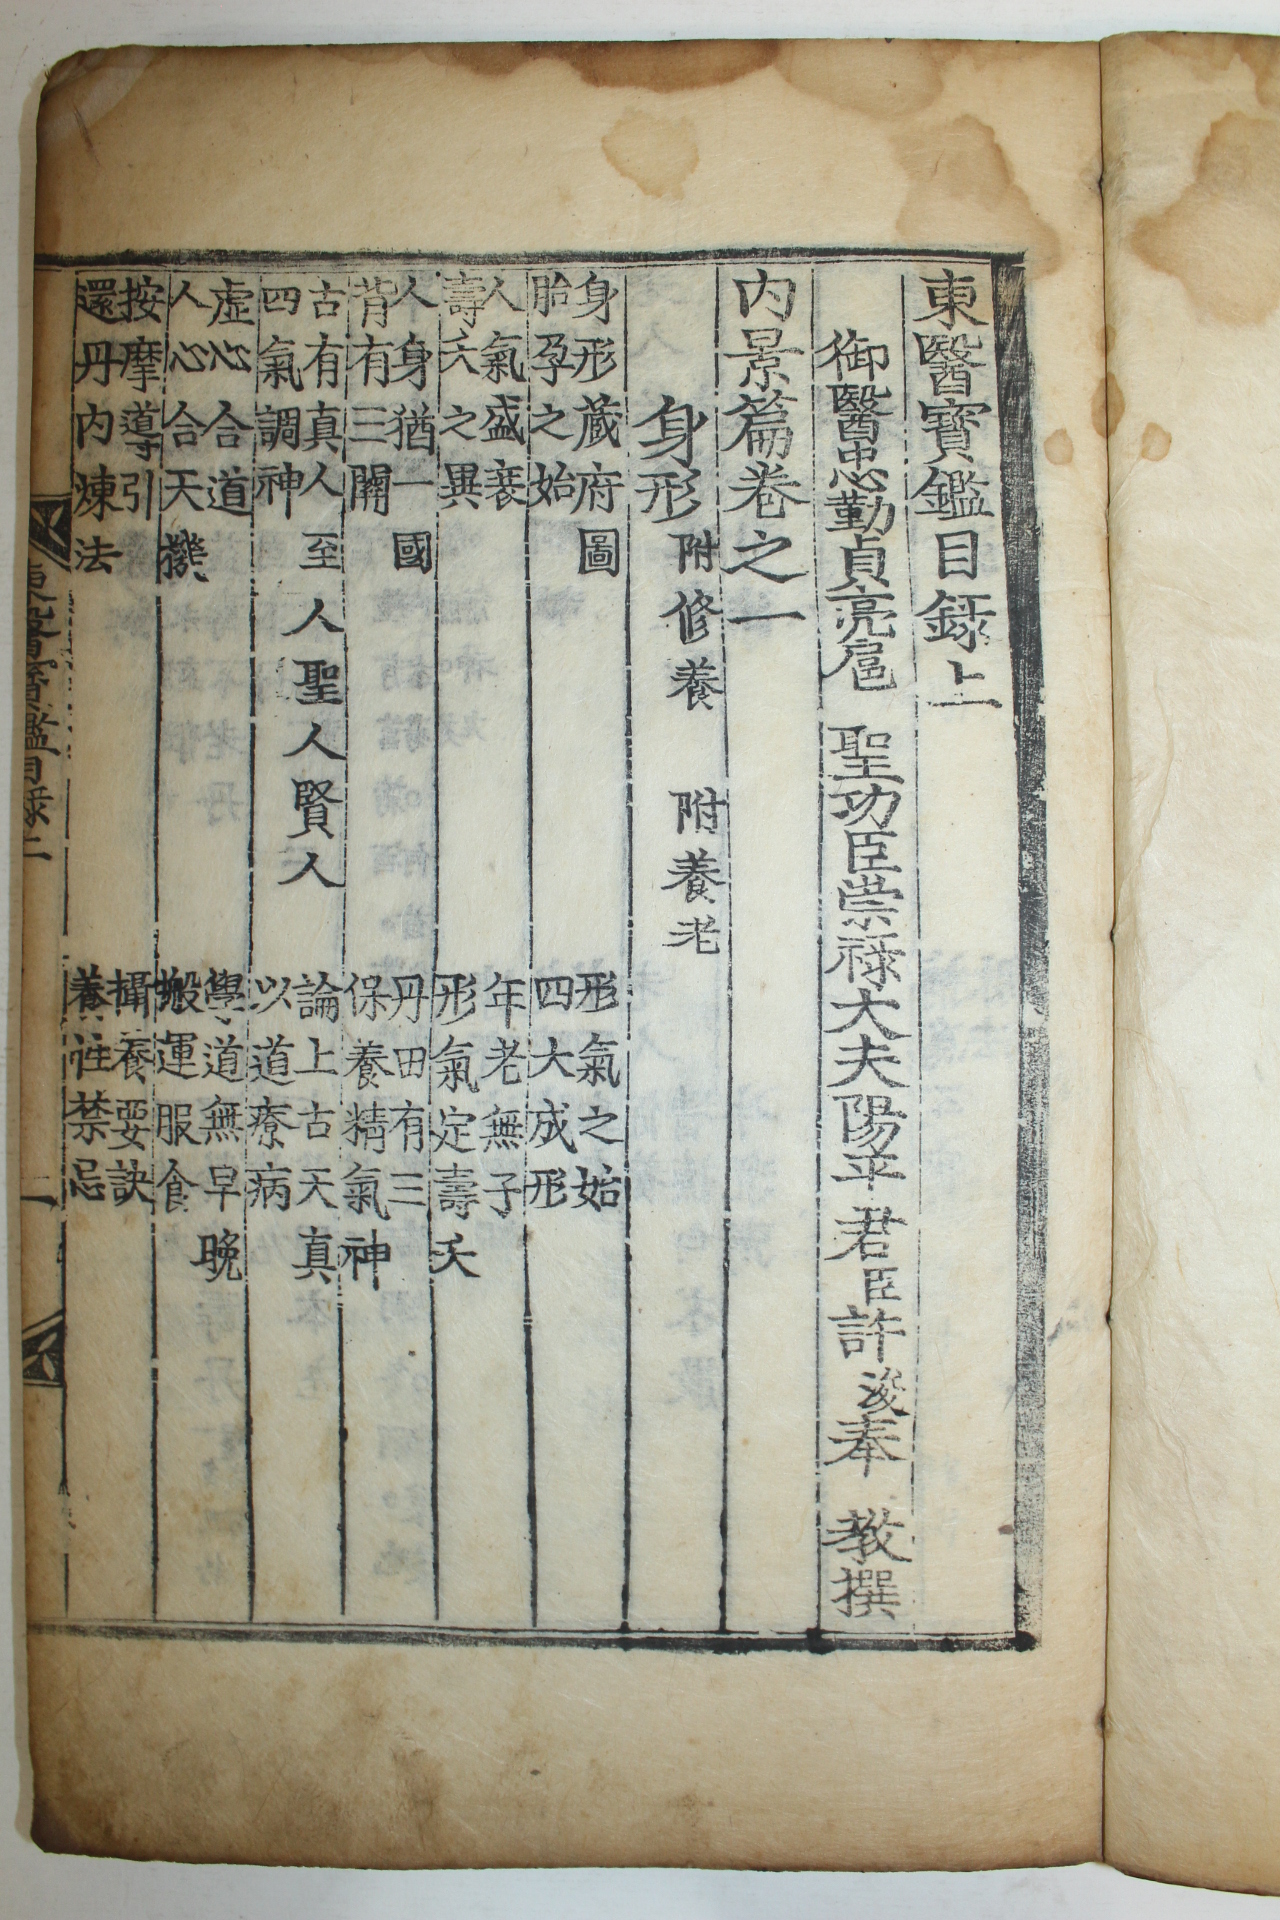 東醫寶鑑目録上
御醫忠勤貞亮扈 聖功臣崇祿大夫陽平君臣許浚奉 教撰
内景篇卷之一
身形 附修養 附養老
身形蔵府圖 形氣之始
胎孕之始 四大成形
人氣盛衰 年老無子
壽夭之異 形氣定壽夭
人身猶一國 丹田有三
背有三關 保養精氣神
古有真人至人聖人賢人 論上古天真
四氣調神 以道療病
虛心合道 學道無早晚
人心合天機 搬運服食
按摩導引 攝養要訣
還丹内煉法 養性禁忌
東醫寶鑑目録上 一